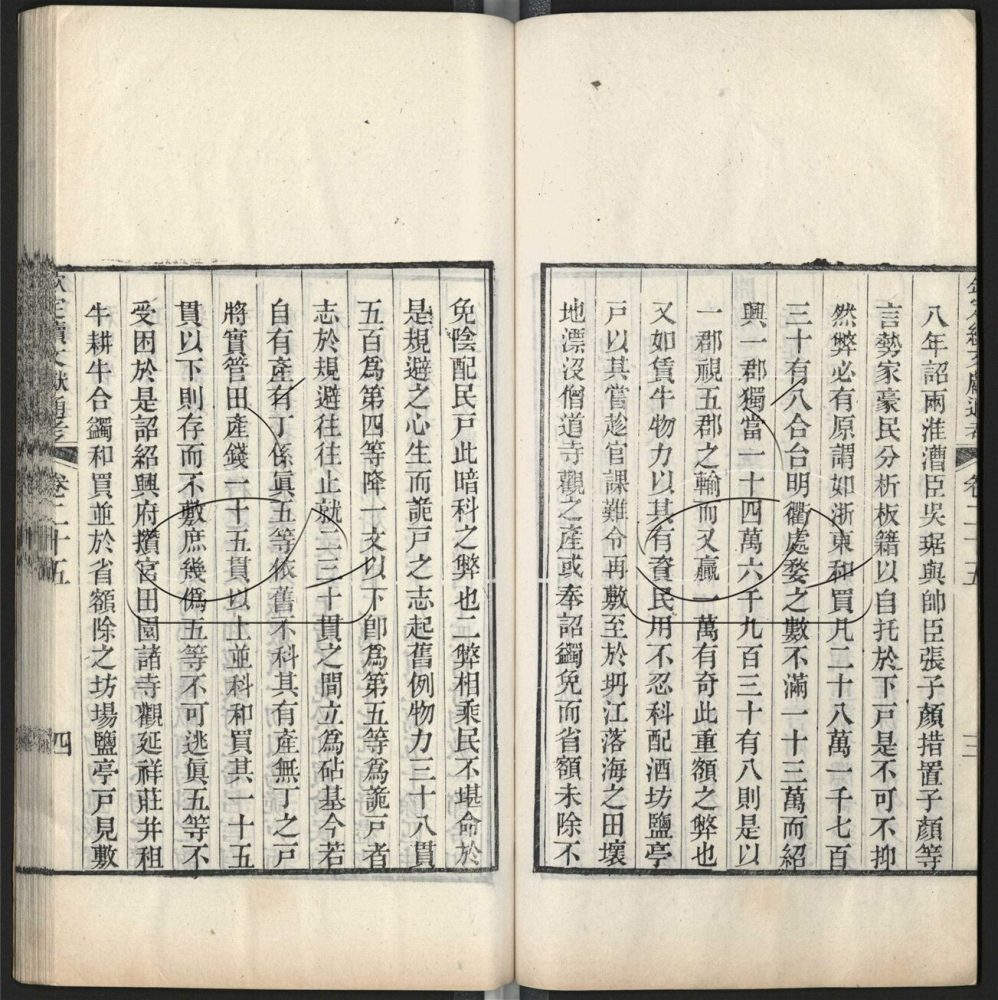 欽定續文獻通考 卷二十五 三
八年詔兩淮漕臣吳琚與帥臣張子顏措置子顏等
言勢家豪民分析板籍以自托於下戶是不可不抑
然弊必有原謂如浙東和買凡二十八萬一千七百
三十有八合台明衢處婺之數不滿一十三萬而紹
興一郡獨當一十四萬六千九百三十有八則是以
一郡視五郡之輸而又贏一萬有奇此重額之弊也
又如賃牛物力以其有資民用不忍科配酒坊鹽亭
戶以其嘗趁官課難令再敷至於坍江落海之田壤
地漂沒僧道寺觀之產或奉詔蠲免而省額未除不
免陰配民戶此暗科之弊也二弊相乘民不堪命於
是規避之心生而詭戶之志起舊例物力三十八貫
五百爲第四等降一文以下卽爲第五等爲詭戶者
志於規避往往止就二三十貫之間立爲砧基今若
自有產有丁係眞五等依舊不科其有產無丁之戶
將實管田產錢一十五貫以上並科和買其一十五
貫以下則存而不敷庶幾僞五等不可逃眞五等不
受困於是詔紹興府攢宮田園諸寺觀延祥莊井租
牛耕牛合蠲和買並於省額除之坊場鹽亭戶見敷
欽定續文獻通考 卷二十五 四